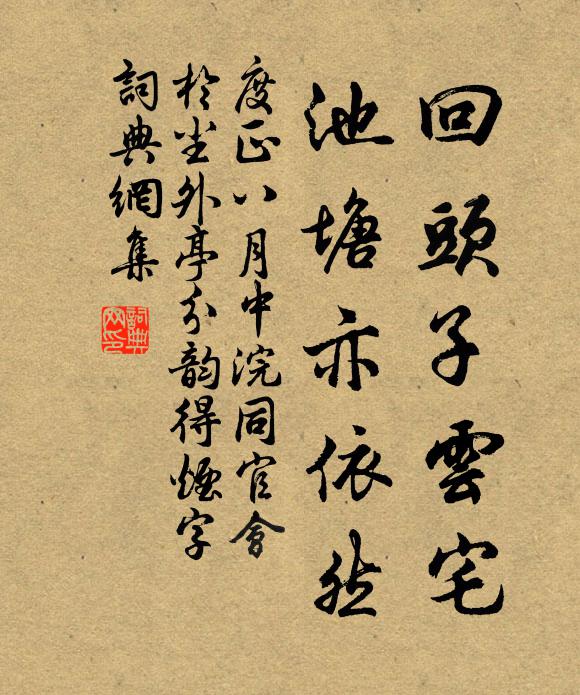 回頭子雲宅
池塘亦依然
度正八月中浣同官會
於坐外亭分韵得煙字
詞典網集
詞典網印